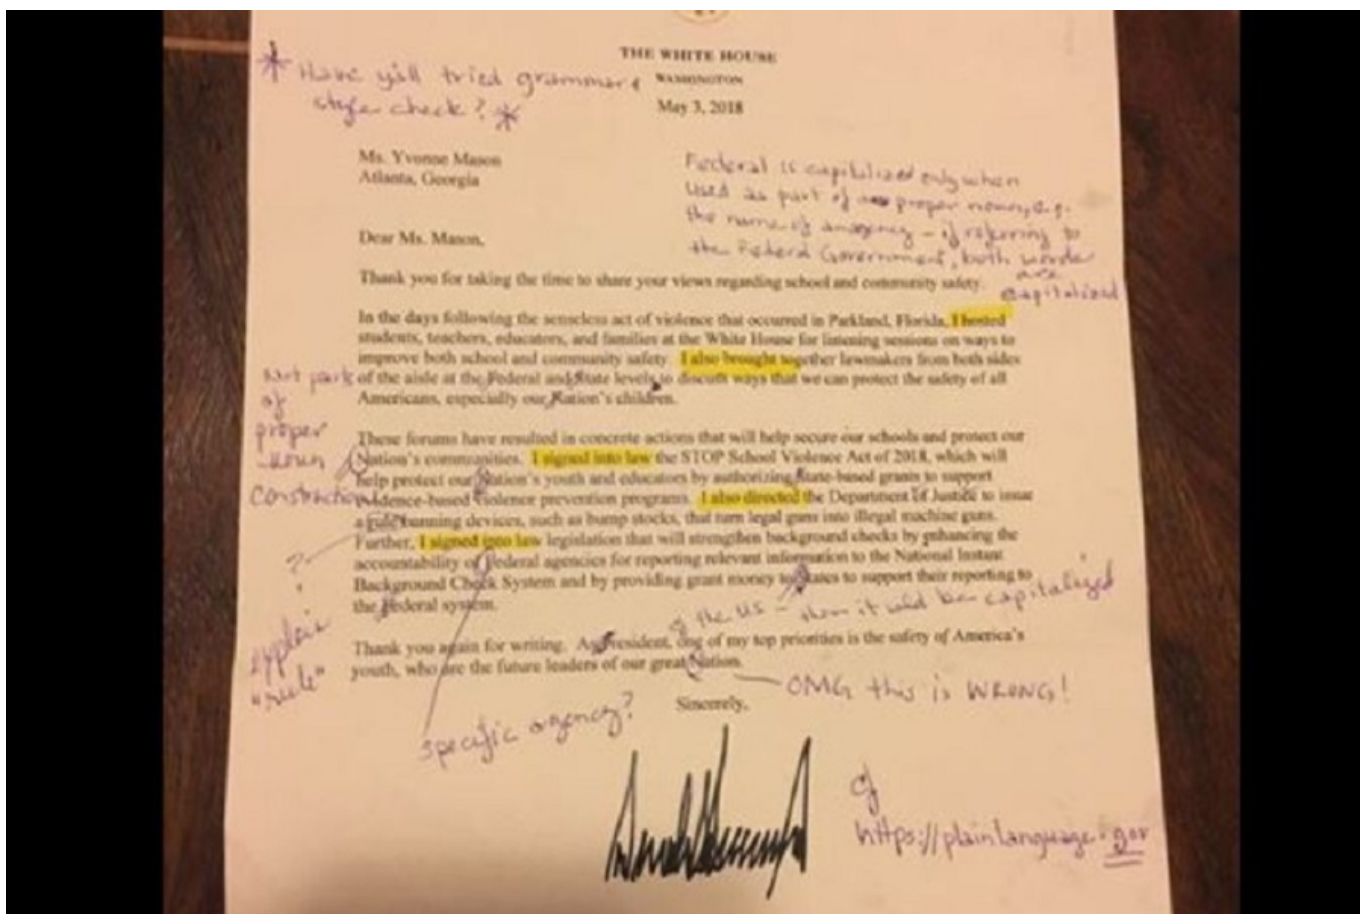 THE WHITE HOUSE
WASHINGTON
May 3, 2018
* Have y'all tried grammar &
style check? *
Ms. Yvonne Mason
Atlanta, Georgia
Federal is capitalized only when
used as part of proper noun, e.g.
the name of an agency – if referring to
the Federal Government, both words
are
capitalized
Dear Ms. Mason,
Thank you for taking the time to share your views regarding school and community safety.
In the days following the senseless act of violence that occurred in Parkland, Florida, I hosted
students, teachers, educators, and families at the White House for listening sessions on ways to
improve both school and community safety. I also brought together lawmakers from both sides
of the aisle at the Federal and State levels to discuss ways that we can protect the safety of all
Americans, especially our Nation's children.
Not part
of
proper
noun
construction
These forums have resulted in concrete actions that will help secure our schools and protect our
Nation's communities. I signed into law the STOP School Violence Act of 2018, which will
help protect our Nation's youth and educators by authorizing State-based grants to support
evidence-based violence prevention programs. I also directed the Department of Justice to issue
a rule banning devices, such as bump stocks, that turn legal guns into illegal machine guns.
Further, I signed into law legislation that will strengthen background checks by enhancing the
accountability of Federal agencies for reporting relevant information to the National Instant
Background Check System and by providing grant money to States to support their reporting to
the Federal system.
?
explain
"rule"
of the US – then it would be capitalized
Thank you again for writing. As President, one of my top priorities is the safety of America's
youth, who are the future leaders of our great Nation.
OMG this is WRONG!
Sincerely,
specific agency?
cf
https://plainlanguage.gov